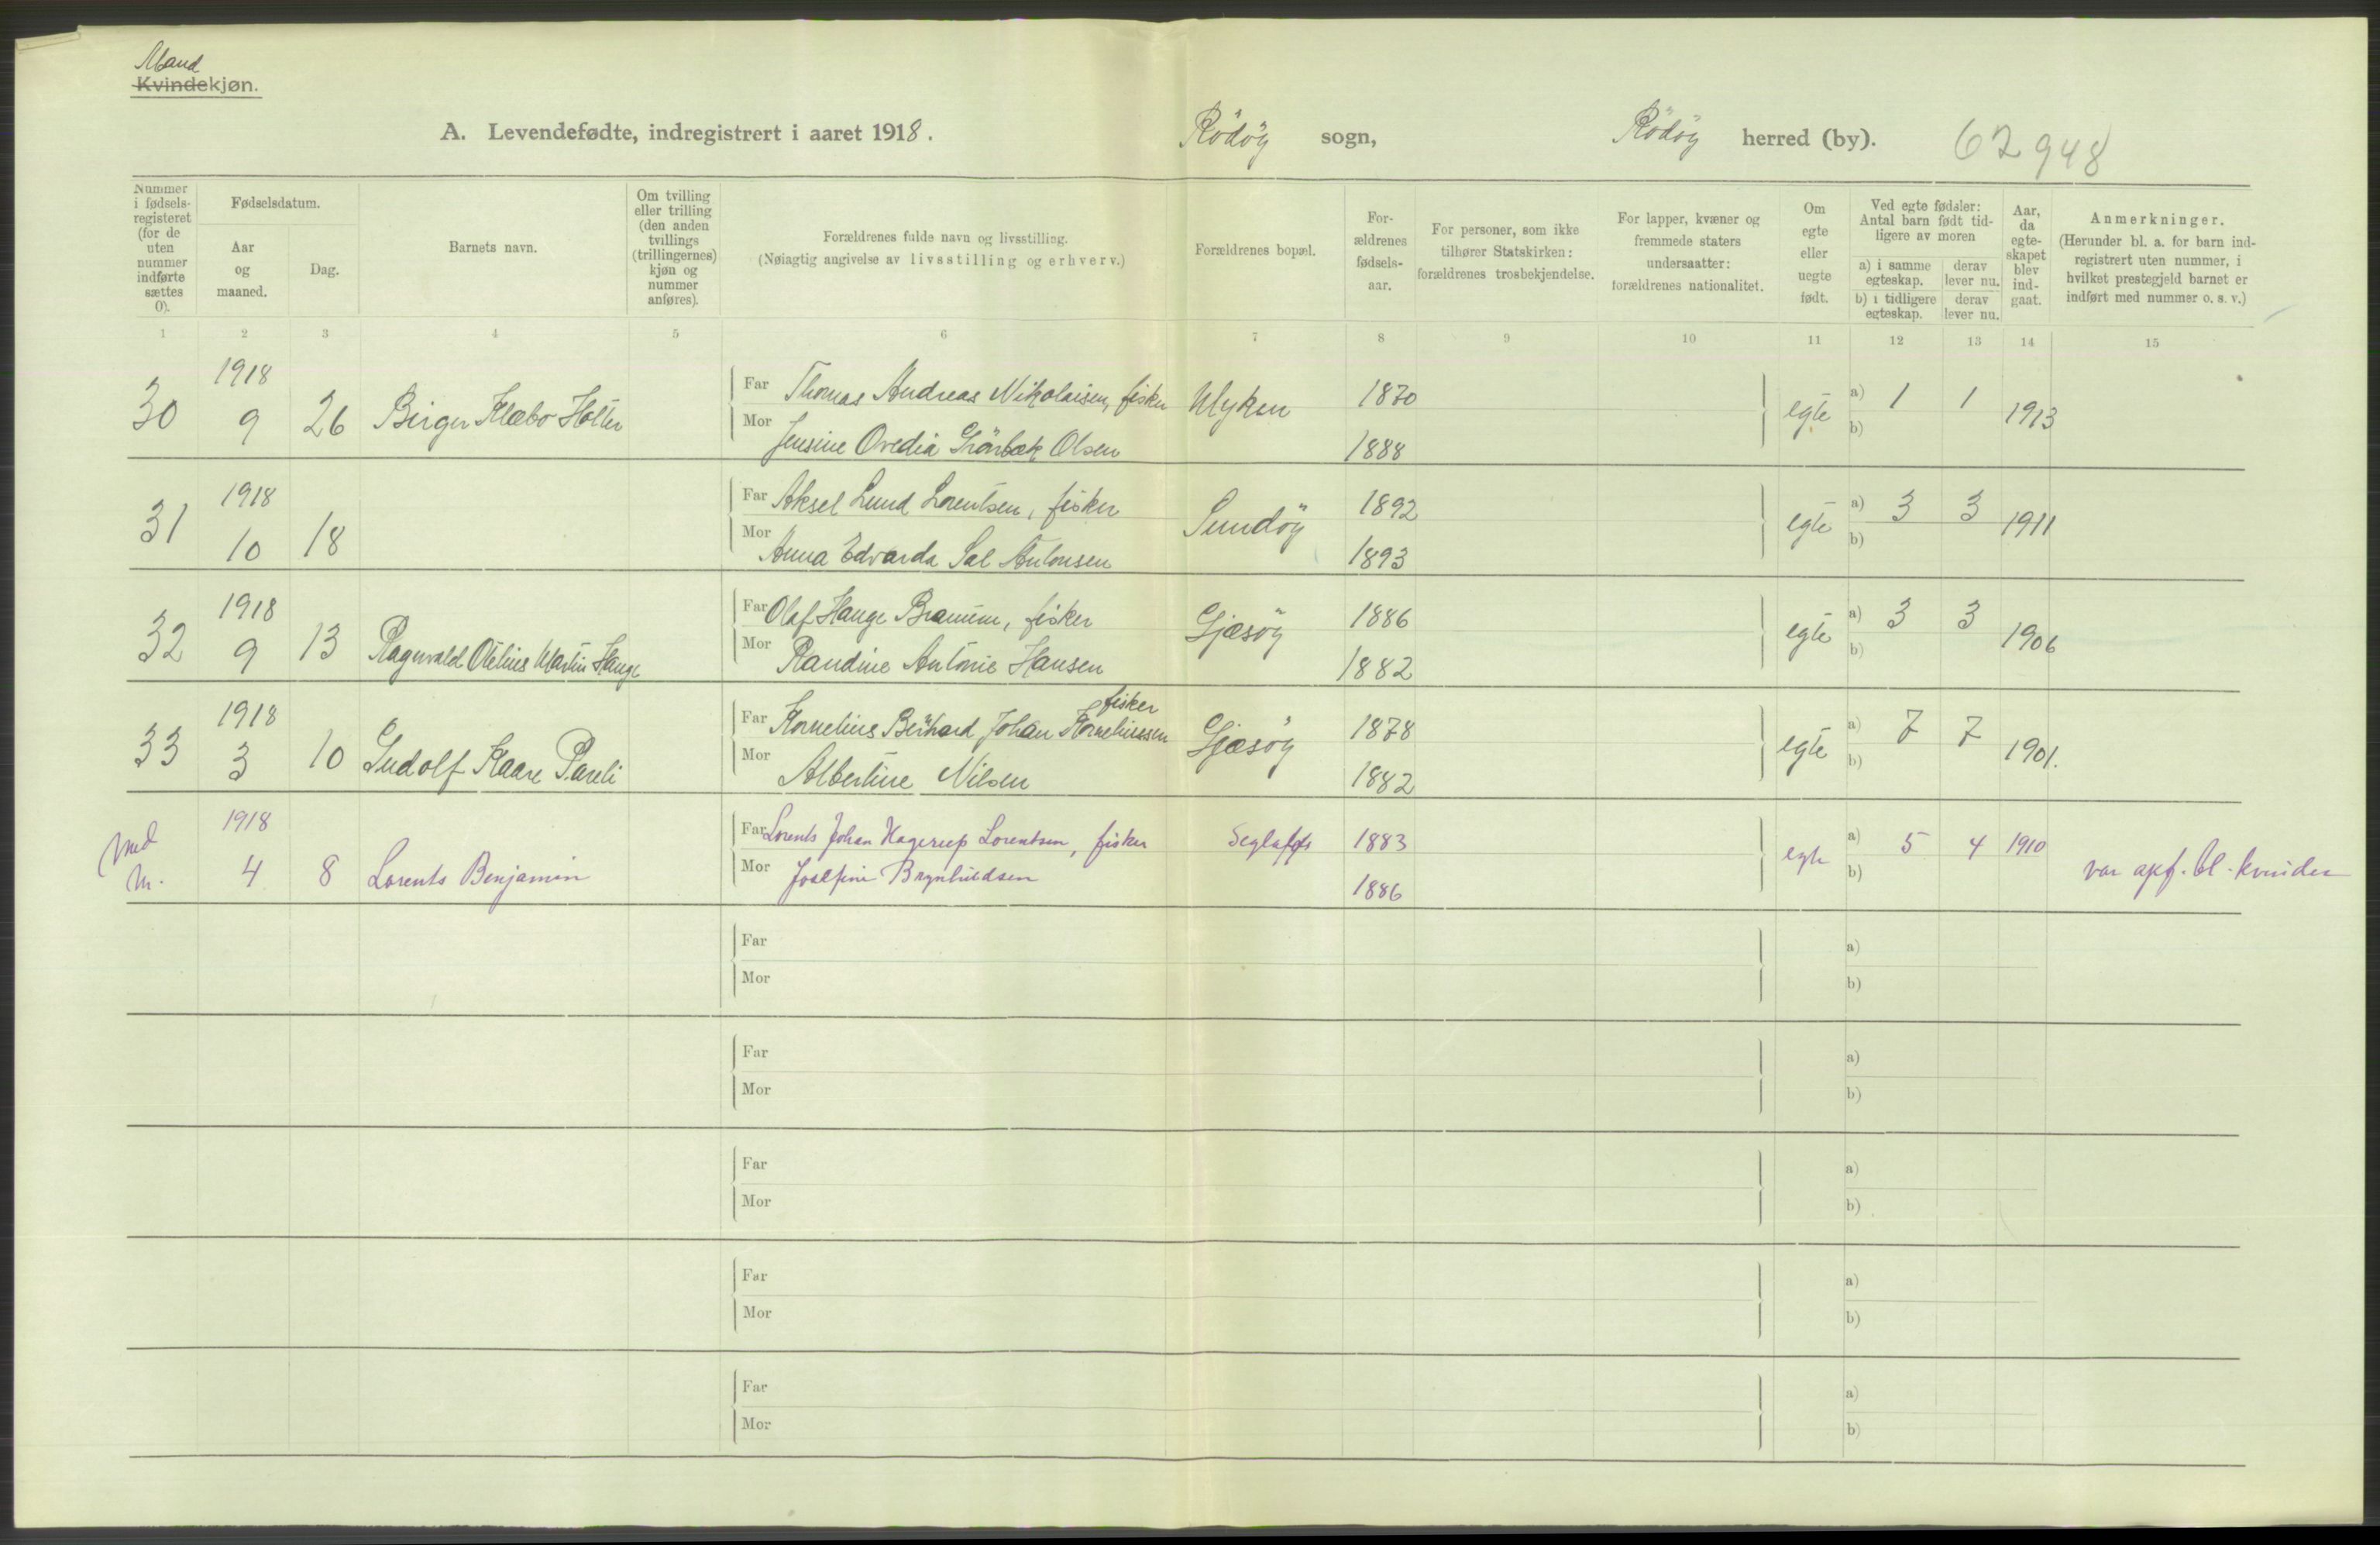 Mand
Kvindekjøn.
A. Levendefødte, indregistrert i aaret 1918. Rödöy sogn, Rödöy herred (by). 62948
Nummer i fødsels-registeret (for de uten nummer indførte sættes 0).
Fødselsdatum.
Aar og maaned.
Dag.
Barnets navn.
Om tvilling eller trilling (den anden tvillings (trillingernes) kjøn og nummer anføres).
Forældrenes fulde navn og livsstilling.
(Nøiagtig angivelse av livsstilling og erhverv.)
Forældrenes bopæl.
For-ældrenes fødsels-aar.
For personer, som ikke tilhører Statskirken: forældrenes trosbekjendelse.
For lapper, kvæner og fremmede staters undersaatter: forældrenes nationalitet.
Om egte eller uegte født.
Ved egte fødsler: Antal barn født tid-ligere av moren
a) i samme egteskap.
derav lever nu.
b) i tidligere egteskap.
derav lever nu.
Aar, da egte-skapet blev ind-gaat.
Anmerkninger.
(Herunder bl. a. for barn ind-registrert uten nummer, i hvilket prestegjeld barnet er indført med nummer o. s. v.)
1 2 3 4 5 6 7 8 9 10 11 12 13 14 15
30 1918 9 26 Birger Klæbo Holter
Far Thomas Andreas Nikolaisen, fisker Myken 1870 egte a) 1 1 1913
Mor Jensine Ovedia Grönbæk Olsen 1888 b)
31 1918 10 18
Far Aksel Lund Lorentsen, fisker Sundöy 1892 egte a) 3 3 1911
Mor Anna Edvarda Sal Antonsen 1893 b)
32 1918 9 13 Ragnvald Otelius Martin Hauge
Far Olaf Hauge fisker Gjæsöy 1886 egte a) 3 3 1906
Mor Randine Antonie Hansen 1882 b)
33 1918 3 10 Gudolf Kaare Pareli
Far Kornelius Bernhard Johan Korneliussen fisker Gjæsöy 1878 egte a) 7 7 1901.
Mor Albertine Nilsen 1882 b)
med m. 1918 4 8 Lorents Benjamin
Far Lorents Johan Hagerup Lorentsen, fisker 1883 egte a) 5 4 1910
Mor Josefine Brynhildsen 1886 b) var opf. bl. kvinder
Far a)
Mor b)
Far a)
Mor b)
Far a)
Mor b)
Far a)
Mor b)
Far a)
Mor b)